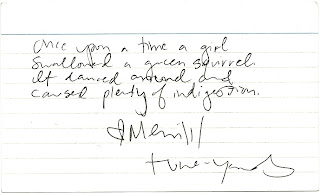 Once upon a time a girl
swallowed a green squirrel.
It danced around and
caused plenty of indigestion.
Merrill
tune-yards